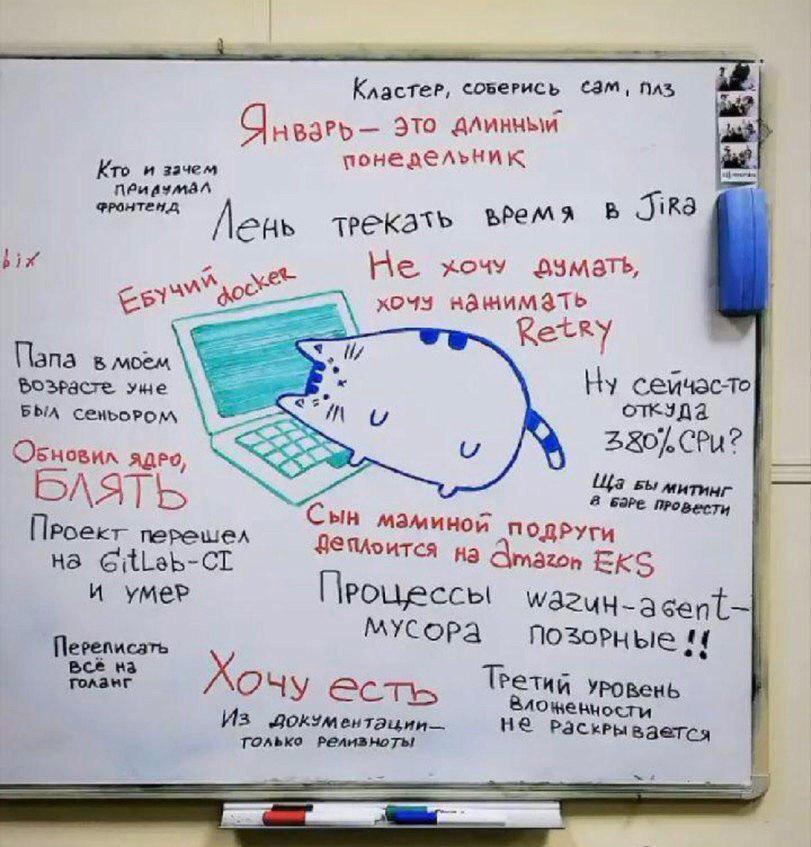 Кластер, соберись сам, плз
Январь — это длинный
понедельник
Кто и зачем
придумал
фронтенд
Лень трекать время в Jira
bix
Ебучий docker
Не хочу думать,
хочу нажимать
Retry
Папа в моём
возрасте уже
был сеньором
Ну сейчас-то
откуда
380% CPU?
Обновил ядро,
БЛЯТЬ
Ща бы митинг
в баре провести
Проект перешел
на GitLab-CI
и умер
Сын маминой подруги
деплоится на Amazon EKS
Процессы wazuh-agent-
мусора позорные!!
Переписать
всё на
голанг
Хочу есть
Из документации—
только релизноты
Третий уровень
вложенности
не раскрывается